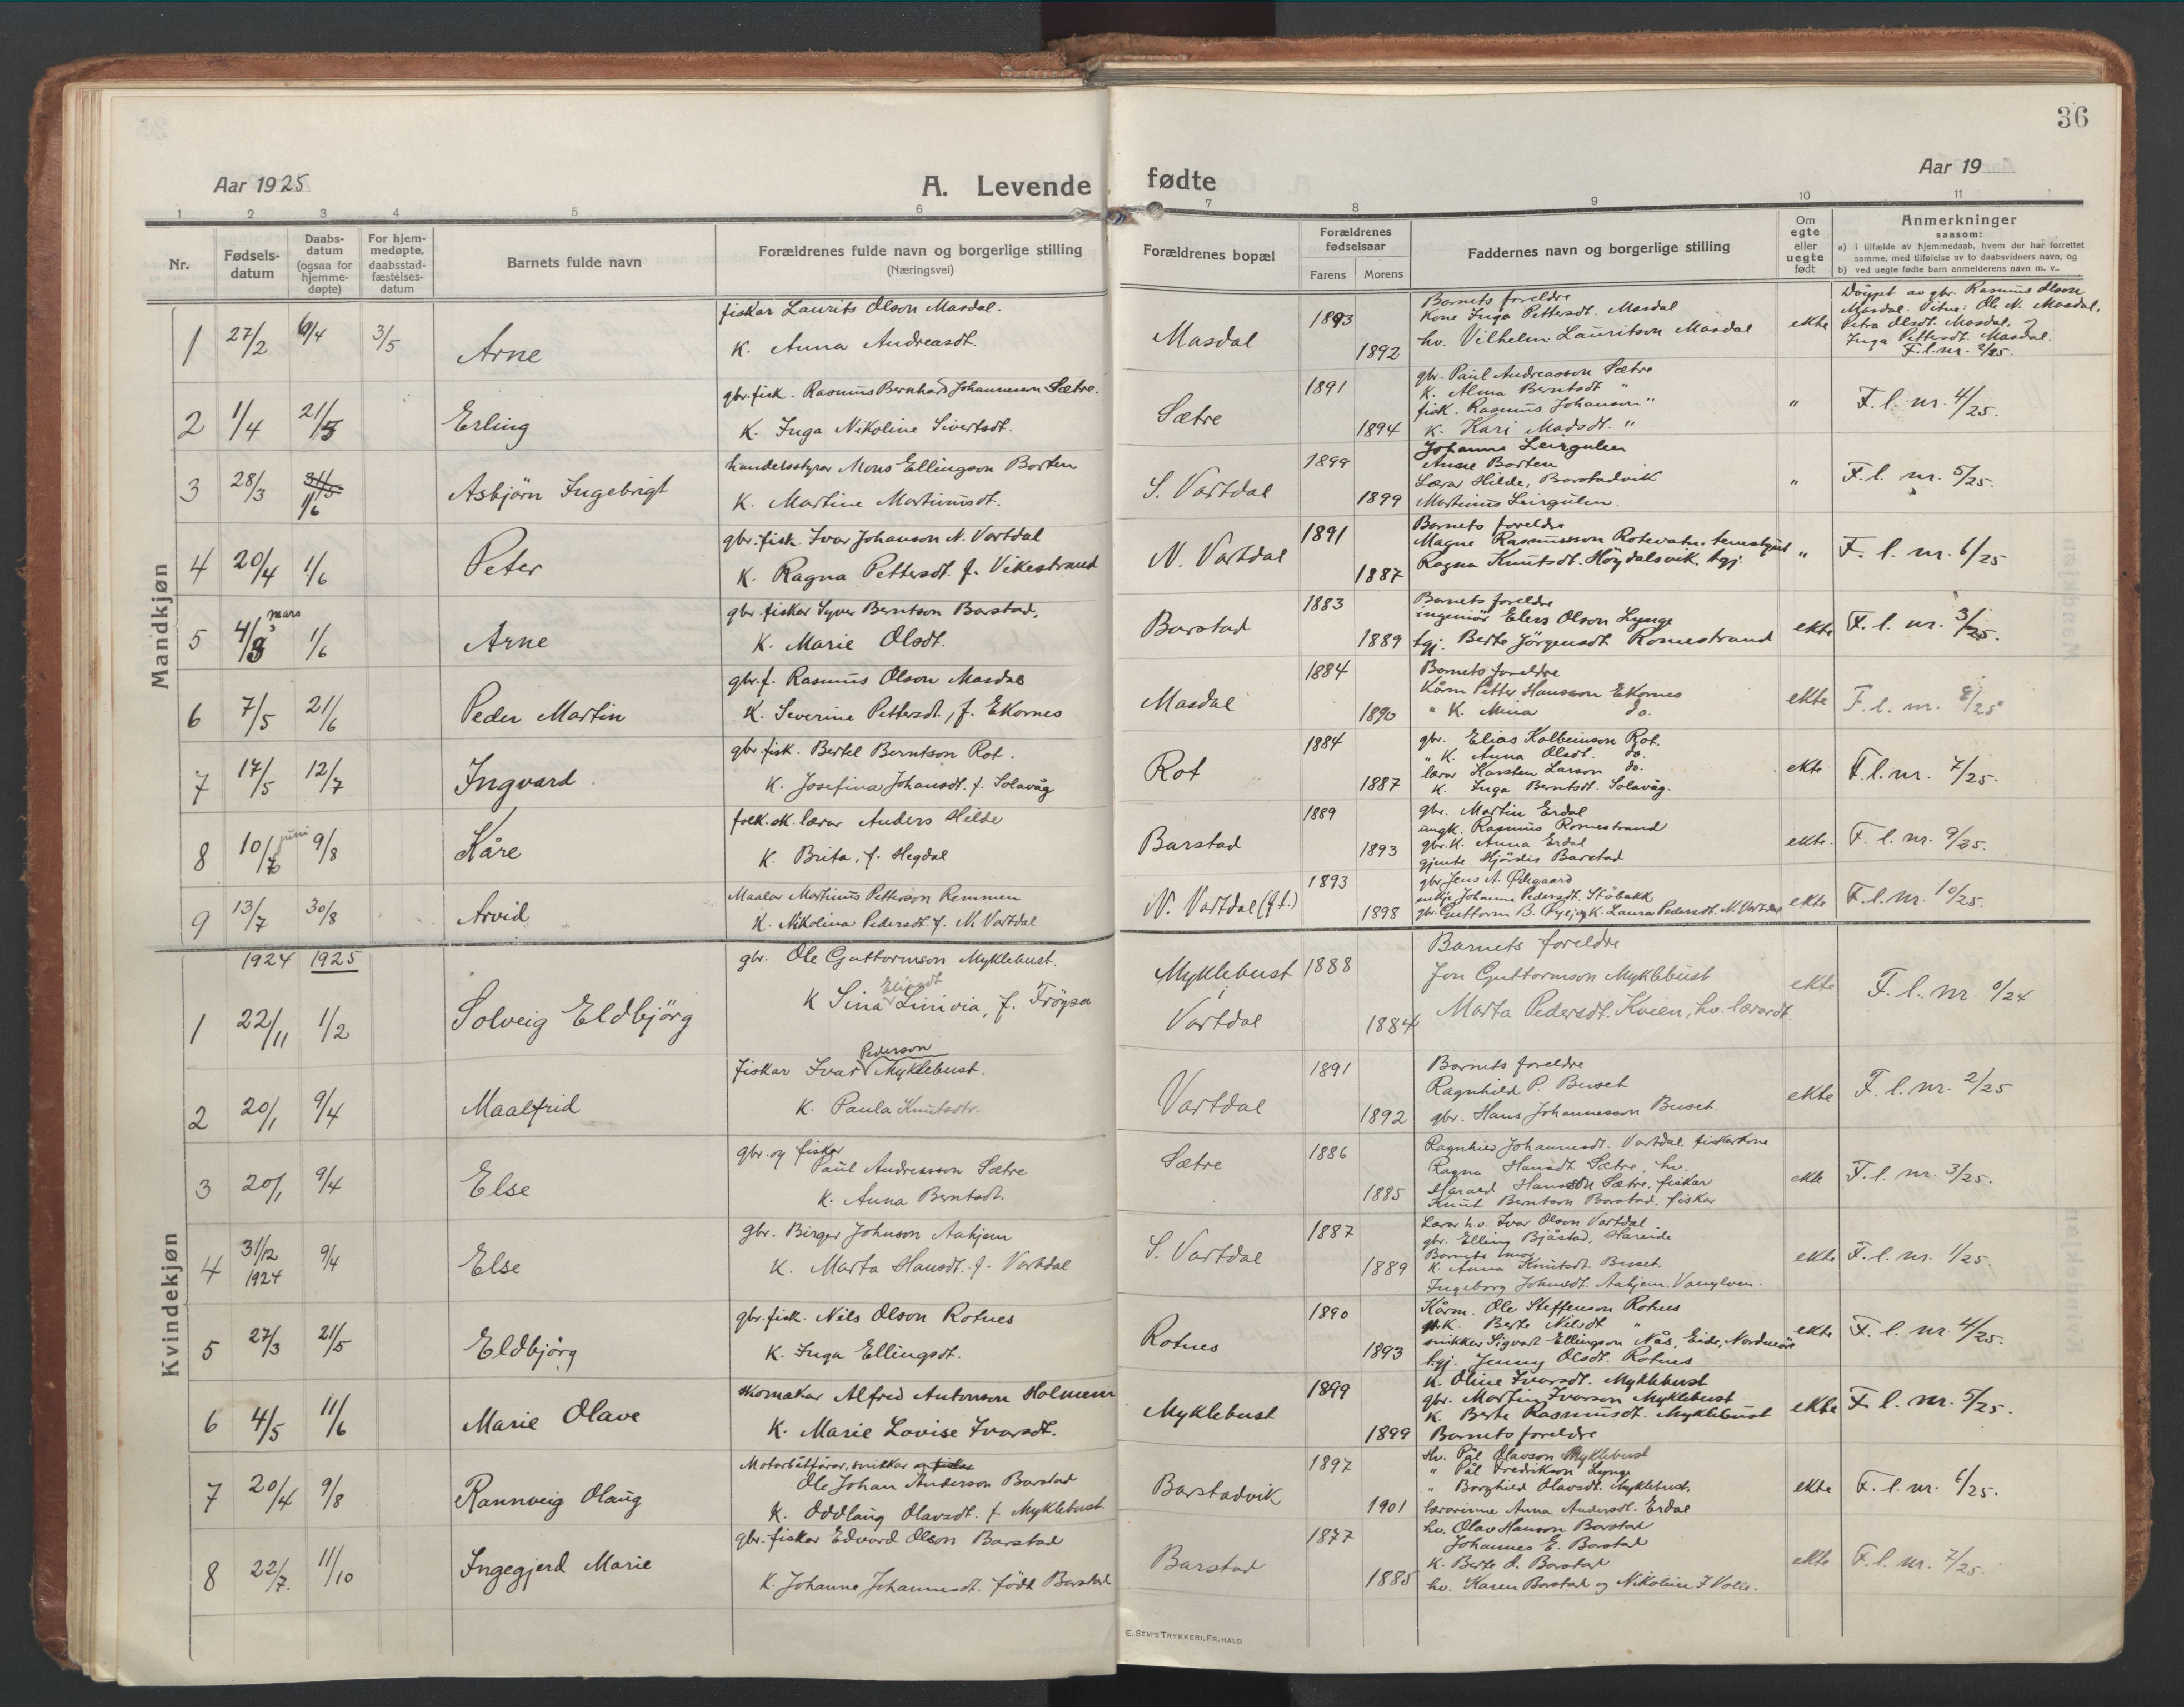 36
Aar 1925
A. Levende fødte
Aar 19
1 2 3 4 5 6 7 8 9 10 11
Nr.
Fødsels-
datum
Daabs-
datum
(ogsaa for
hjemme-
døpte)
For hjem-
medøpte,
daabsstad-
fæstelses-
datum
Barnets fulde navn
Forældrenes fulde navn og borgerlige stilling
(Næringsvei)
Forældrenes bopæl
Forældrenes
fødselsaar
Farens Morens
Faddernes navn og borgerlige stilling
Om
egte
eller
uegte
født
Anmerkninger
saasom:
a) i tilfælde av hjemmedaab, hvem der har forrettet
samme, med tilføielse av to daabsvidners navn, og
b) ved uegte fødte barn anmelderens navn m. v..
Mandkjøn
1 27/2 6/4 3/5 Arne
fiskar Laurits Olson Masdal.
K. Anna Andreasdt.
Masdal 1893 1892
Barnets foreldre
Kone Inga Pettersdt. Masdal
hv. Vilhelm Lauritson Masdal
ekte
Døypt av gbr. Rasmus Olson
Masdal. Vitne: Ole N. Masdal,
Petra Olsdt. Masdal,
Inga Pettersdt. Masdal.
F.l.nr. 2/25.
2 1/4 21/5 Erling
gbr. fisk. Rasmus Bernhard Johannesson Sætre.
K. Inga Nikoline Sivertsdt.
Sætre 1891 1894
gbr. Paul Andreasson Sætre
K. Alma Berntsdt "
fisk. Rasmus Johanson "
K. Kari Madsdt. "
" F. l. nr. 4/25.
3 28/3 31/5 1/6 Asbjörn Ingebrigt
handersstyrar Mons Ellingson Barten
K. Martine Martinusdt.
S. Vartdal 1899 1899
Johanna Leirgulen
Anne Barten
Lærar Hilde, Barstadvik
Martinus Leirgulen.
" F. l. nr. 5/25.
4 20/4 1/6 Peter
gbr. fisk. Ivar Johanson N. Vartdal
K. Ragna Pettersdt. f. Vikestrand
N. Vartdal 1891 1887
Barnets foreldre
Magne Rasmusson Rotevatn, tenestgut
Ragna Knutsdt. Höydalsvik, tgj.
" F. l. nr. 6/25
5 4/3 mars 1/6 Arne
gbr. fiskar Syver Berntson Barstad,
K. Marie Olsdt.
Barstad 1883 1889
Barnets foreldre
ingeniör Elers Olson Lynge
tgj. Berte Jörgensdt Romestrand
ekte F. l. nr. 3/25.
6 7/5 21/6 Peder Martin
gbr. f. Rasmus Olson Masdal
K. Severine Pettersdt., f. Ekornes
Masdal 1884 1890
Barnets foreldre
Kårm Petter Hansson Ekornes
" K. Mina do.
ekte F. l. nr. 8/25
7 17/5 12/7 Ingvard
gbr. fisk. Bertel Berntson Rot.
K. Josefina Johansdt. f. Solavåg
Rot 1884 1887
gbr. Elias Kolbeinson Rot.
" K. Anna Olsdt. do.
lærar Karsten Larson do.
K. Inga Berntsdt. Solavåg.
ekte F. l. nr. 7/25.
8 10/6 juni 9/8 Kåre
folk. sk. lærar Anders Hilde
K. Brita, f. Hegdal
Barstad 1889 1893
gbr. Martin Erdal
ungk. Rasmus Romestrand
gbr. K. Anna Erdal
gjente Hjördis Barstad
ekte. F. l. nr. 9/25.
9 13/7 30/8 Arvid
Maalar Martinus Petterson Remmen
K. Nikolina Pedersdt. f. N. Vartdal
N. Vartdal 1893 1898
gbr Jens A. Ödegaard
enkje Johanne Pedersdt. Støbakk
K. Laura Pedersdt. N. Vartdal
ekte F. l. nr. 10/25.
Kvindekjøn
1924 1925
1 22/11 1/2 Solveig Eldbjörg
gbr. Ole Guttormson Myklebust.
K Sina Linivia, f. Fröysa
Myklebust, Vartdal 1888 1884
Barnets foreldre
Jon Guttormson Myklebust
Marta Pedersdt. Kvien, hv. lærardt.
ekte F. l. nr. 0/24
2 20/1 9/4 Maalfrid
fiskar Ivar Pederson Myklebust.
K. Paula Knutsdtr.
Vartdal 1891 1892
Barnets foreldre
Ragnhild P. Buset
gbr. Hans Johannesson Buset.
ekte F. l. nr. 2/25
3 20/1 9/4 Else
gbr. og fiskar
Paul Andreasson Sætre
K. Anna Berntsdt.
Sætre 1886 1885
Ragnhild Johannesdt. Vartdal. fiskarkone
Ragna Hansdt Sætre, hv.
Harald Hansson Sætre, fiskar
Knut Berntson Barstad, fiskar
ekte F. l. nr. 3/25.
4 31/12 1924 9/4 Else
gbr. Birger Johnson Aahjem
K. Marta Hansdt. f. Vartdal
S. Vartdal 1887 1889
Lærar h.v. Ivar Olson Vartdal
gbr. Elling Bjåstad, Hareide
Barnets mor
K. Anna Knutsdt. Buset.
Ingeborg Johnsdt. Aahjem. Vanylven.
ekte F. l. nr. 1/25.
5 27/3 21/5 Eldbjörg
gbr. fisk. Nils Olson Rotnes
K. Inga Ellingsdt.
Rotnes 1890 1893
Kårm. Ole Steffenson Rotnes
K. Berte Nilsdt "
snikkar Sigvart Ellingson Nås, Eide, Nordmöre
tgj. Jenny Olsdt. Rotnes
ekte F. l. nr. 4/25.
6 4/5 11/6 Marie Olave
skomakar Alfred Antonson Holmen
K. Marie Lovise Ivarsdt.
Myklebust 1899 1899
K. Oline Ivarsdt. Myklebust
gbr. Martin Ivarson Myklebust
K. Berte Rasmusdt. Myklebust
Barnets foreldre
ekte F. l. nr. 5/25.
7 20/4 9/8 Rannveig Olaug
Motorbåtförar, snikkar og fiskar
Ole Johan Anderson Barstad
K. Oddlaug Olavsdt. f. Myklebust
Barstadvik 1897 1901
Hv. Pål Olavson Myklebust
" Pål Fredrikson Lynge
" Borghild Olavsdt. Myklebust,
lærarinne Anna Andersdt. Erdal
ekte F. l. nr. 6/25.
8 22/7. 11/10 Ingegjerd Marie
gbr. fiskar Edvard Olson Barstad
K. Johanne Johannesdt. född Barstad
Barstad 1877 1885
hv. Olav Hanson Barstad
Johannes E. Barstad
K. Berte O. Barstad
hv. Karen Barstad og Nikoline
ekte F. l. nr. 7/25.
E. SEM'S TRYKKERI, FR. HALD